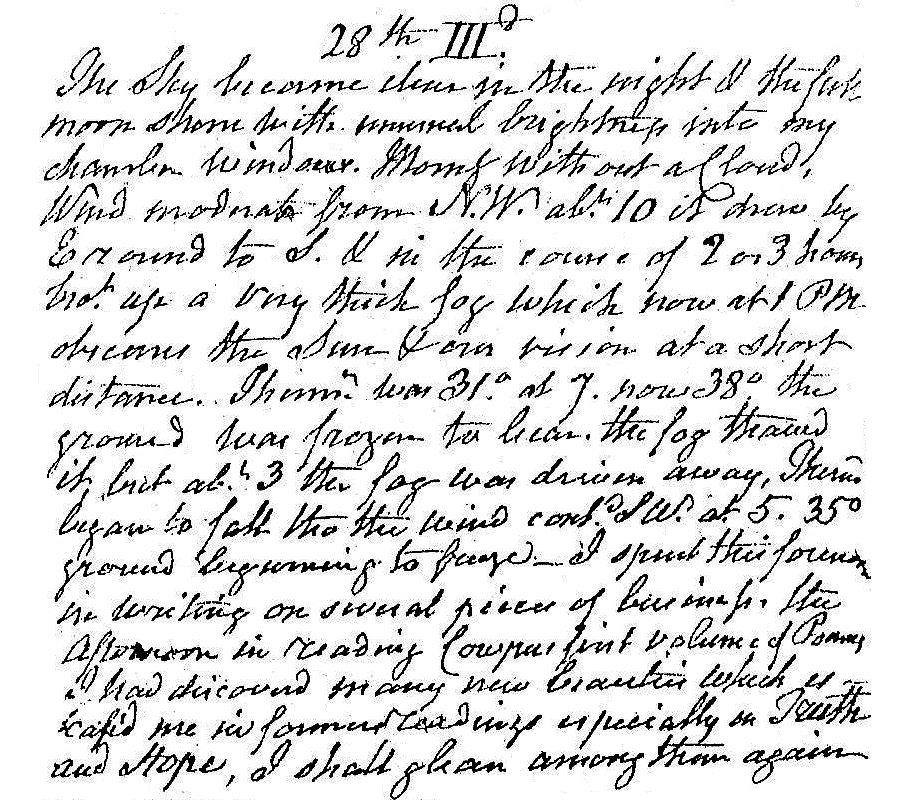 28th III.d
The Sky became clear in the night & the full
moon shone with unusual brightness into my
chamber windows. Morng without a Cloud,
Wind moderate from N.W. abt. 10 it drew by
E round to S. & in the course of 2 or 3 hours
brot. up a very thick fog which now at 1 PM
obscures the Sun & our vision at a short
distance. Thermr. was 31.° at 7. now 38° the
ground was frozen to bear. the fog thawed
it but abt. 3 the fog was driven away, Therm
began to fall tho the wind contd. S W. at 5. 35°
ground beginning to freeze — I spent this forenn
in writing on several pieces of business. the
Afternoon in reading Cowpers first volume of Poems
I had discoverd many new beauties which es-
capd me in former readings especially in Truth
and Hope, I shall glean among them again